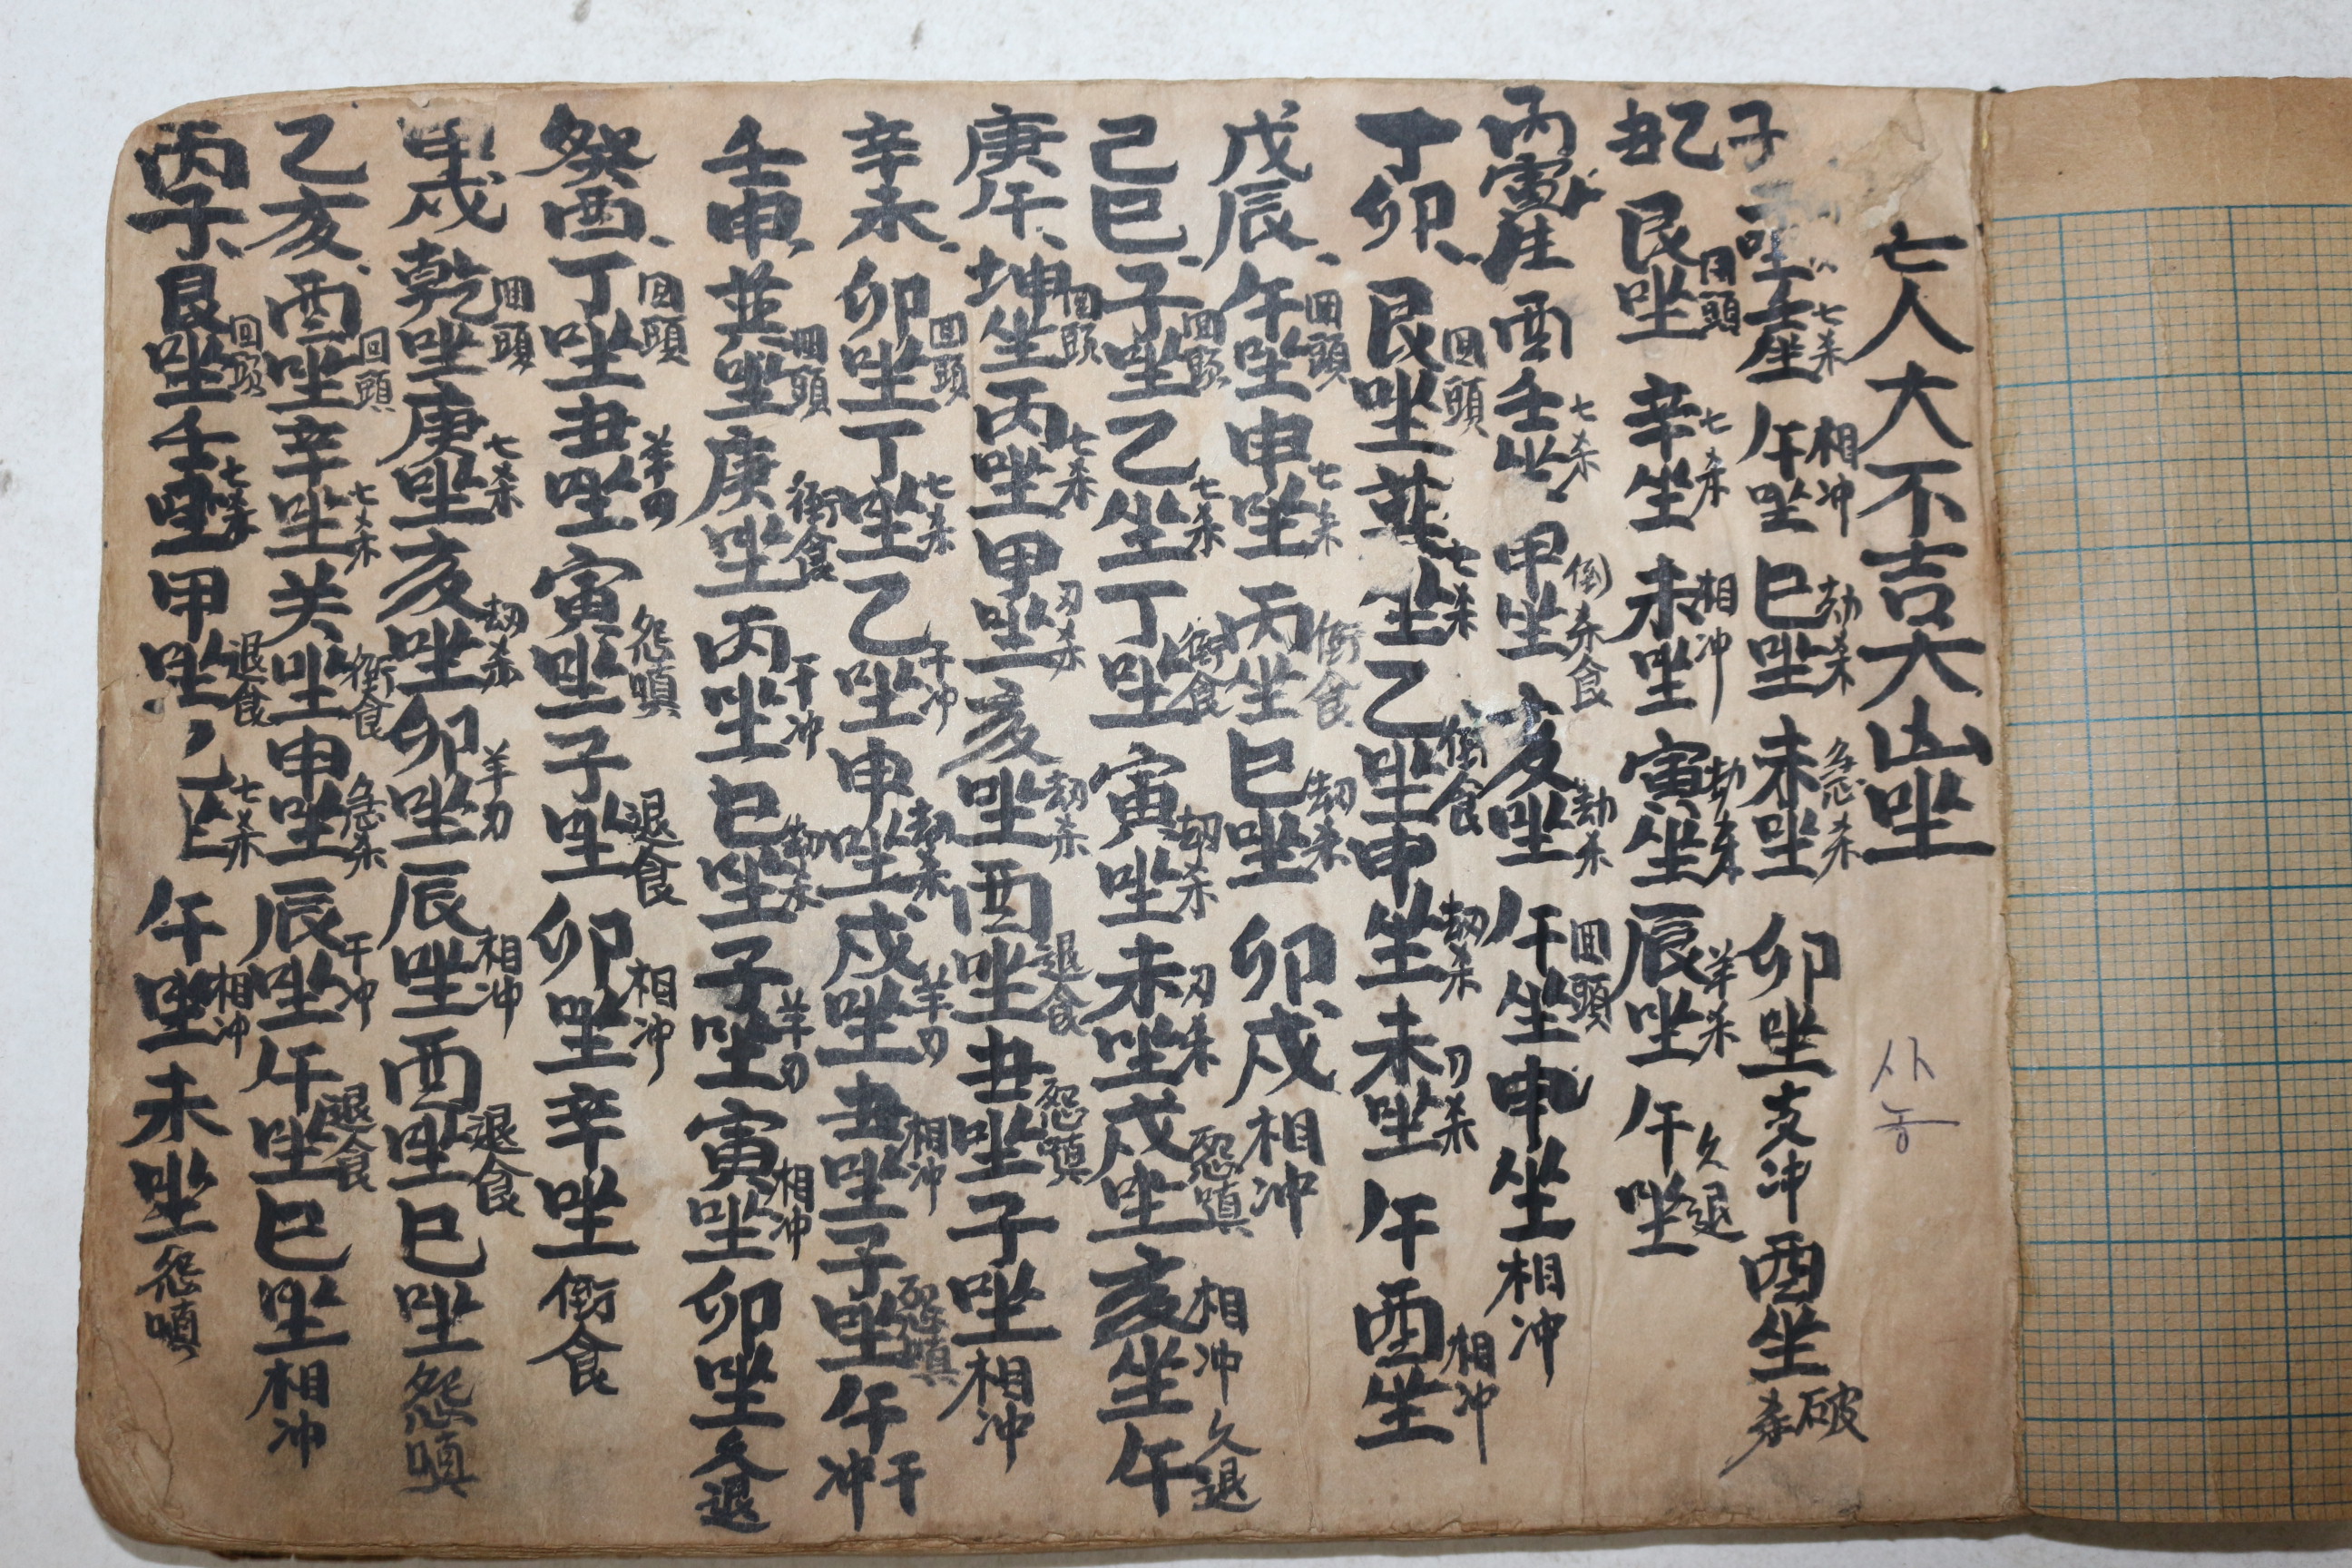 亡人大不吉大凶坐
사농
子 坐 壬座七杀 午坐相冲 巳坐劫杀 未坐急杀 卯坐支冲 酉坐破杀
乙丑 艮坐回頭 辛坐七杀 未坐相冲 寅坐劫杀 辰坐羊杀 午坐久退
丙寅生 酉 壬坐七杀 甲坐倒食 亥坐劫杀 午坐回頭 申坐相冲
丁卯 艮坐回頭 坐七杀 乙坐倒食 申坐劫杀 未坐刃杀 午酉坐相冲
戊辰 午坐回頭 申坐七杀 丙坐倒食 巳坐劫杀 卯戌相冲
己巳 子坐回頭 乙坐七杀 丁坐倒食 寅坐劫杀 未坐刃杀 戌坐怨嗔 亥坐相冲 午久退
庚午 坤坐回頭 丙坐七杀 甲坐刃杀 亥坐劫杀 酉坐退食 丑坐怨嗔 子坐相冲
辛未 卯坐回頭 丁坐七杀 乙坐干冲 申坐劫杀 戌坐羊刃 丑坐相冲 子坐怨嗔 午干冲
壬申 坐回頭 庚坐倒食 丙坐干冲 巳坐劫杀 子坐羊刃 寅坐相冲 卯坐久退
癸酉 丁坐回頭 丑坐羊刃 寅坐怨嗔 子坐退食 卯坐相冲 辛坐倒食
甲戌 乾坐回頭 庚坐七杀 亥坐劫杀 卯坐羊刃 辰坐相冲 酉坐退食 巳坐怨嗔
乙亥 酉坐回頭 辛坐七杀 坐倒食 申坐急杀 辰坐干冲 午坐退食 巳坐相冲
丙子 艮坐回頭 壬坐七杀 甲坐退食 七杀 午坐相冲 未坐怨嗔